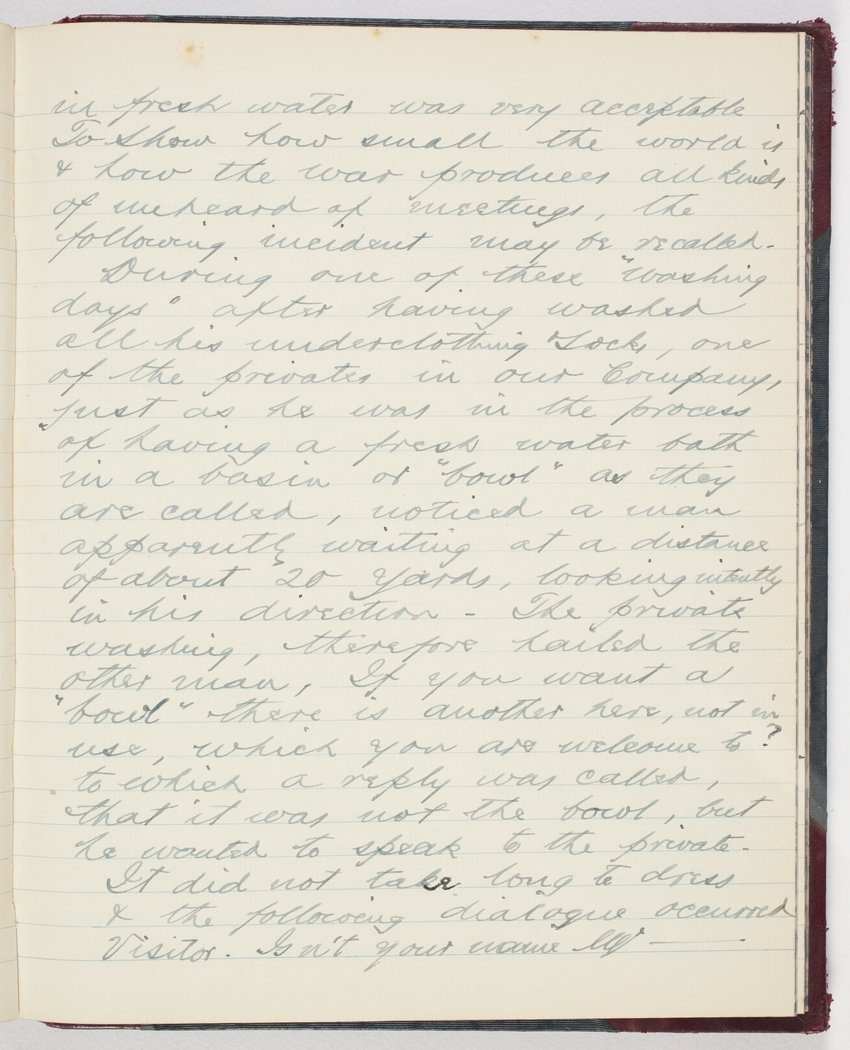 in fresh water was very acceptable
To show how small the world is
& how the war produces all kinds
of unheard of meetings, the
following incident may be recalled.
During one of these "washing
days" after having washed
all his underclothing & socks, one
of the privates in our Company,
just as he was in the process
of having a fresh water bath
in a basin or "bowl" as they
are called, noticed a man
apparently waiting at a distance
of about 20 yards, looking intently
in his direction - The private
washing, therefore hailed the
other man, If you want a
"bowl" there is another here, not in
use, which you are welcome to?
to which a reply was called,
that it was not the bowl, but
he wanted to speak to the private.
It did not take long to dress
& the following dialogue occurred
Visitor. Isn't your name W —.